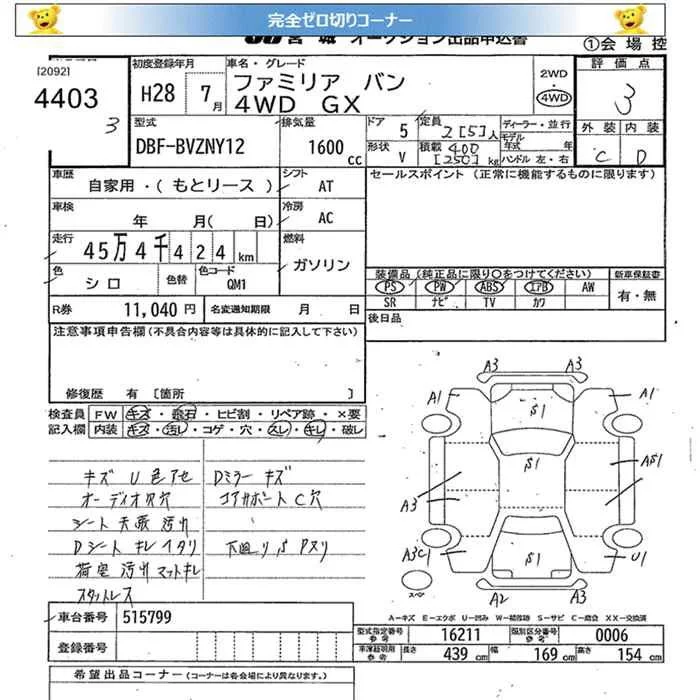 完全ゼロ切りコーナー
JU 宮城 オークション出品申込書
①会場控
[2092]
4403
3
初度登録年月
H28年 7月
車名・グレード
ファミリア バン
4WD GX
2WD
4WD
評価点
3
外装 内装
C D
型式
DBF-BVZNY12
排気量
1600cc
ドア
5
定員
2[5]人
ディーラー・並行
モデル年式 年
形状
V
積載
400
[250]kg
ハンドル 左・右
車歴
自家用・(もとリース)
シフト
AT
セールスポイント (正常に機能するものに限ります)
車検
年 月( 日)
冷房
AC
走行
45万4千424km
燃料
ガソリン
色
シロ
色替
色コード
QM1
装備品(純正品に限り○をつけてください)
新車保証書
PS PW ABS エアB AW
有・無
SR ナビ TV カワ
R券
11,040円
名変通知期限 月 日
後日品
注意事項申告欄(不具合内容等は具体的に記入して下さい)
修復歴 有 〔箇所 〕
検査員 FW キズ・飛石・ヒビ割・リペア跡・×要
記入欄 内装 キズ・汚レ・コゲ・穴・スレ・キレ・破レ
キズ U 色アセ
Dミラーキズ
オーディオ穴穴
コアサポートC穴
シート 天張 汚レ
Dシート キレ イタリ
下廻り S アヌリ
荷室 汚レ マットキレ
スタットレス
A3 A3
A1 A1
S1
S1
S1
A3
AS1
A3C1
U1
A2 A3
スペア
A-キズ E-エクボ U-凹み W-補修跡 S-サビ C-腐食 XX-交換済
車台番号
515799
登録番号
型式指定番号 参考
16211
類別区分番号 参考
0006
車庫証明用 参考
長さ 439cm
幅 169cm
高さ 154cm
希望出品コーナー(コーナーは各会場により異なります。)